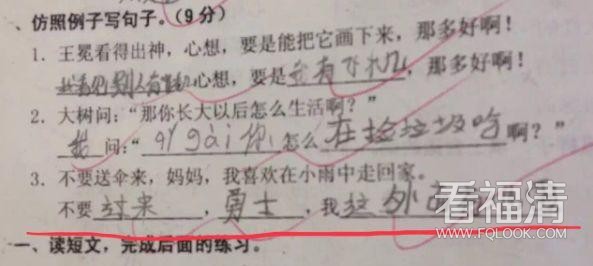 、仿照例子写句子。（9分）
1. 王冕看得出神，心想，要是能把它画下来，那多好啊！
我看见别人有手机心想，要是我有手机，那多好啊！
2. 大树问：“那你长大以后怎么生活啊？”
我问：“qǐ gài 你怎么在捡垃圾吃啊？”
3. 不要送伞来，妈妈，我喜欢在小雨中走回家。
不要过来，勇士，我
看福清
WWW.FQLOOK.COM
一、读短文，完成后面的练习。